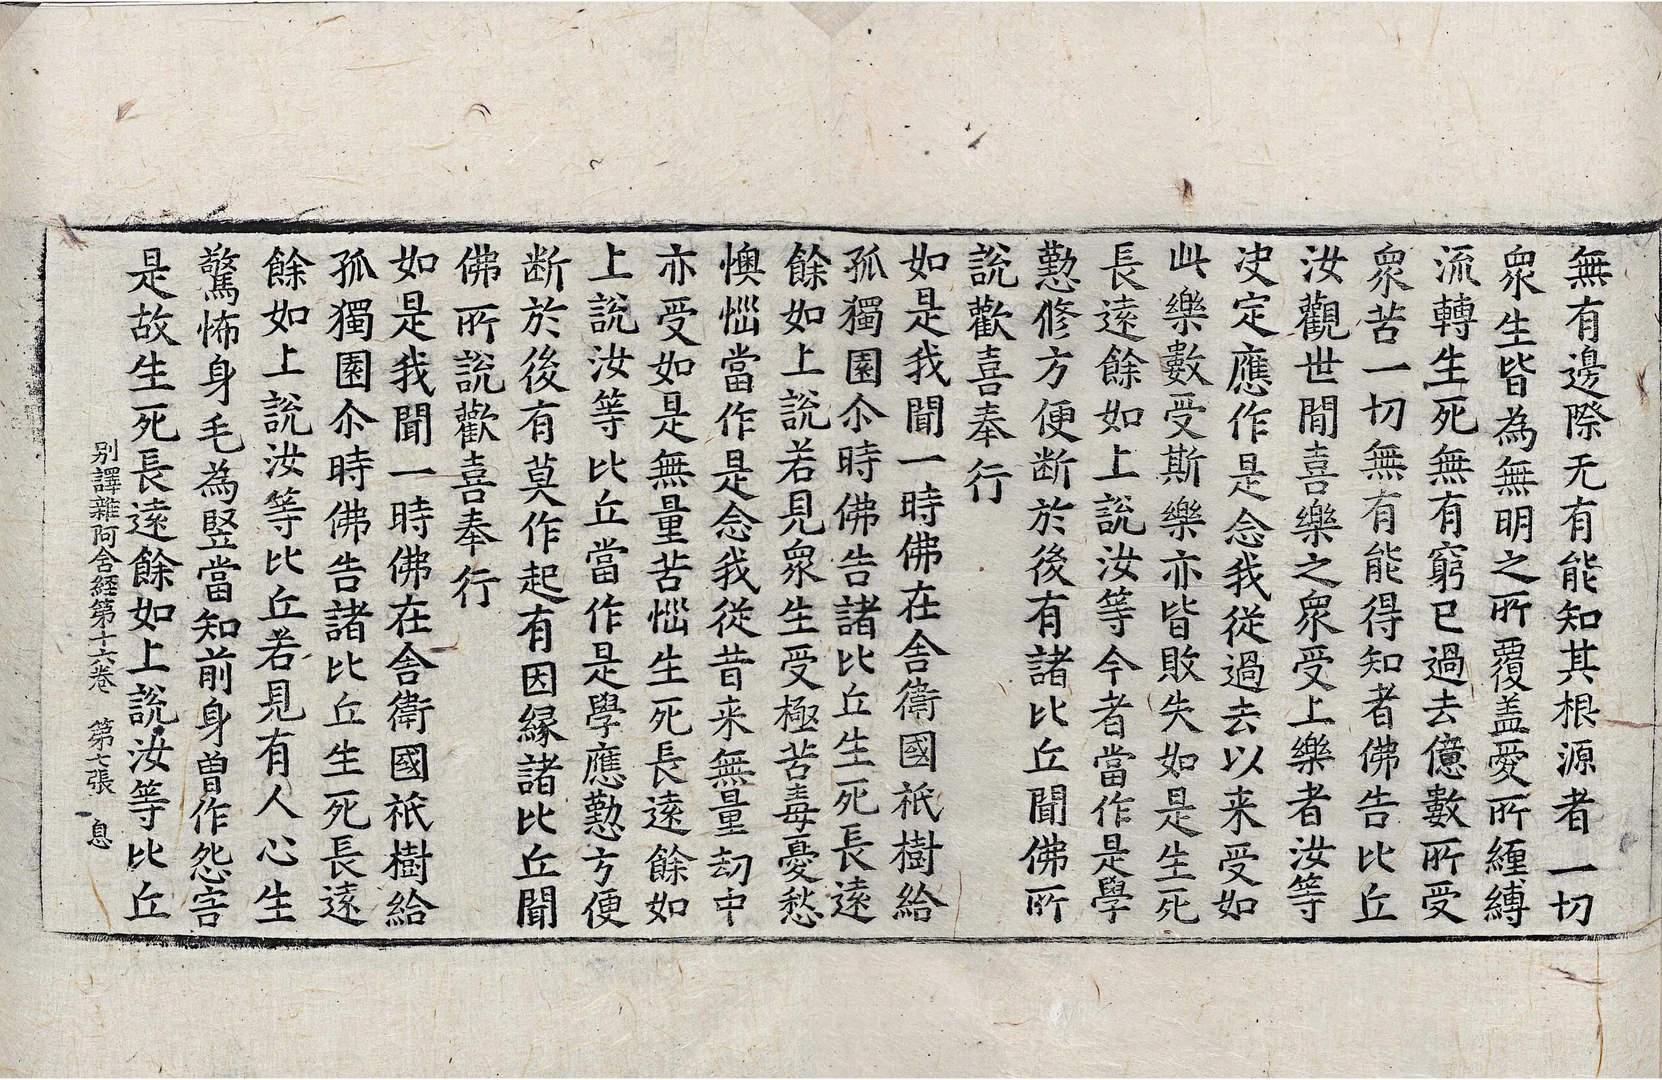 無有邊際无有能知其根源者一切
衆生皆為無明之所覆盖愛所纏縛
流轉生死無有窮已過去億數所受
衆苦一切無有能得知者佛告比丘
汝觀世閒喜樂之衆受上樂者汝等
决定應作是念我從過去以来受如
此樂數受斯樂亦皆敗失如是生死
長遠餘如上說汝等今者當作是學
懃修方便断於後有諸比丘聞佛所
說歡喜奉行
如是我聞一時佛在舎衛國祇樹給
孤獨園尒時佛告諸比丘生死長遠
餘如上說若見衆生受極苦毒憂愁
懊惱當作是念我從昔来無量劫中
亦受如是無量苦惱生死長遠餘如
上說汝等比丘當作是學應懃方便
断於後有莫作起有因縁諸比丘聞
佛所說歡喜奉行
如是我聞一時佛在舎衛國祇樹給
孤獨園尒時佛告諸比丘生死長遠
餘如上說汝等比丘若見有人心生
驚怖身毛為竪當知前身曽作怨害
是故生死長遠餘如上說汝等比丘
别譯雜阿含經第十六卷 第七張 息